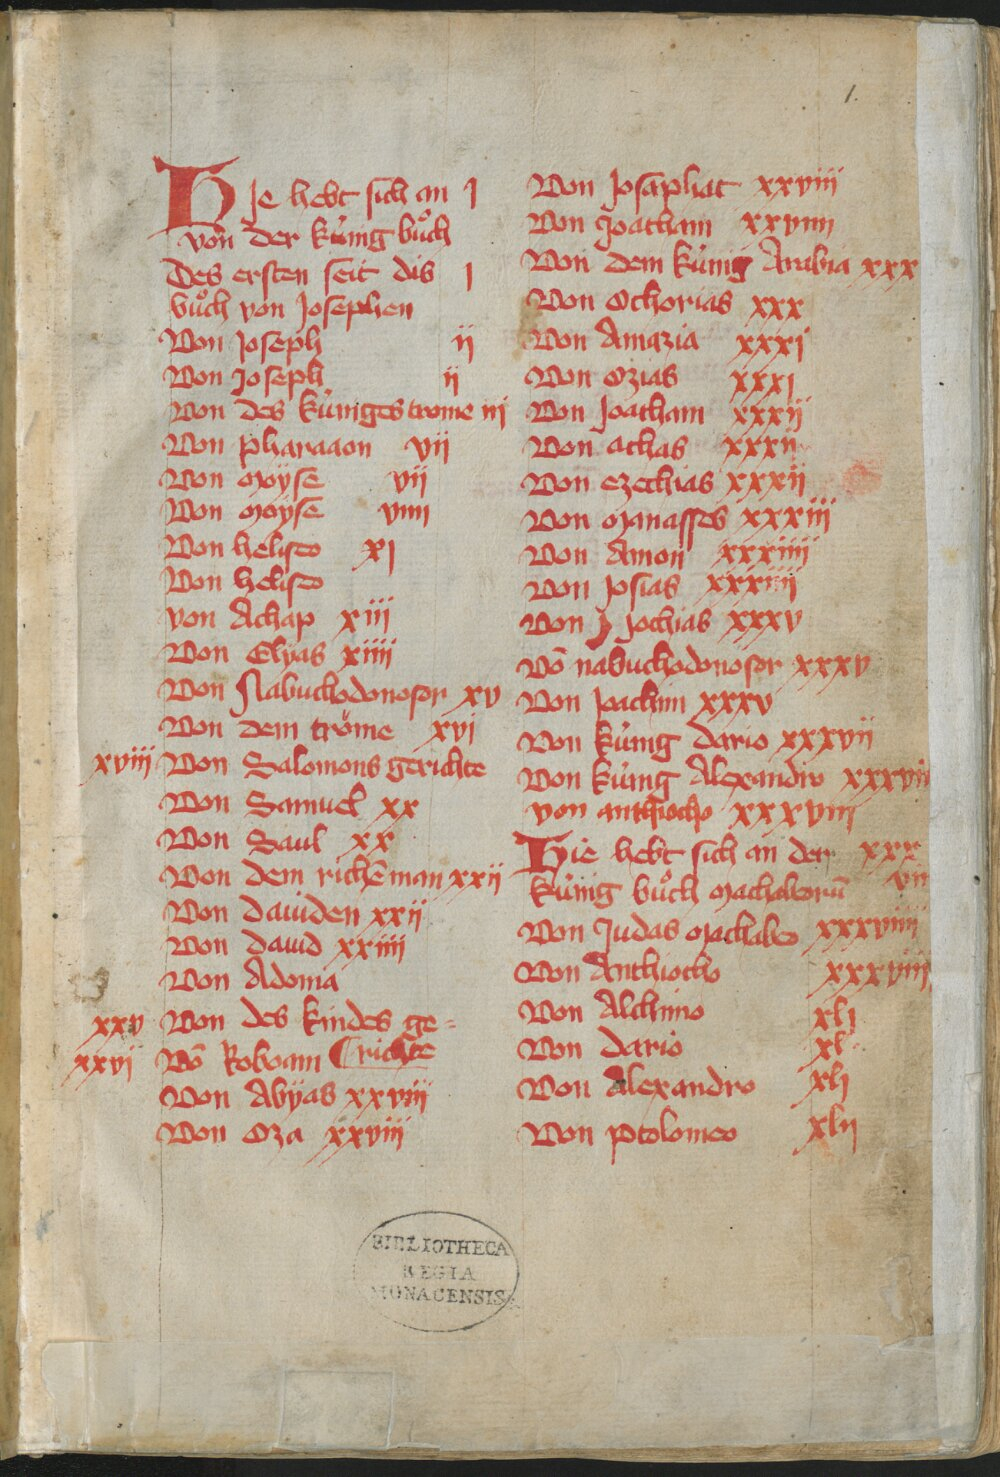 1.
Hie hebt sich an I
von der kúnig buͦch
Des ersten seit dis I
buͦch von Josephen
Von Joseph ii
Von Joseph ii
Von des kúniges trome iii
Von pharaaon vii
Von moyse vii
Von moyse viiii
Von heliseo xi
Von heliseo
von Achap xiii
Von Elyas xiiii
Von Nabuchodonosor xv
Von dem tröme xvi
xviii Von Salomons gerichte
Von Samuel xx
Von Saul xx
Von dem richē man xxii
Von dauiden xxii
Von dauid xxiiii
Von Adonia
xxv Von des kindes ge=
richte
xxvi Vō Roboam
Von Abyas xxviii
Von Oza xxviii
Von Josaphat xxviii
Von Joatham xxviiii
Von dem kúnig Arabia xxx
Von Ochorias xxx
Von Amazia xxxi
Von Ozias xxxi
Von Joatham xxxii
Von achas xxxii
Von ezechias xxxii
Von Manasses xxxiii
Von Amon xxxiiii
Von Josias xxxiiii
Von Jochias xxxv
Vō nabuchodonosor xxxv
Von Joachim xxxv
Von kúnig dario xxxvii
Von kúnig Alexandro xxxvii
von anthiocho xxxviii
Hie hebt sich an der xxx
kúnig buͦch Machabeorū vii
Von Judas Machabeo xxxviiii
Von Anthiocho xxxviiii
Von Alchimo xli
Von dario xli
Von Alexandro xli
Von ptolomeo xlii
BIBLIOTHECA
REGIA
MONACENSIS